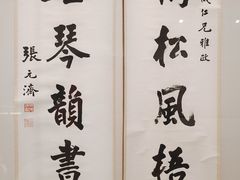 仁兄雅政
松風梧
琴韻書
張元濟